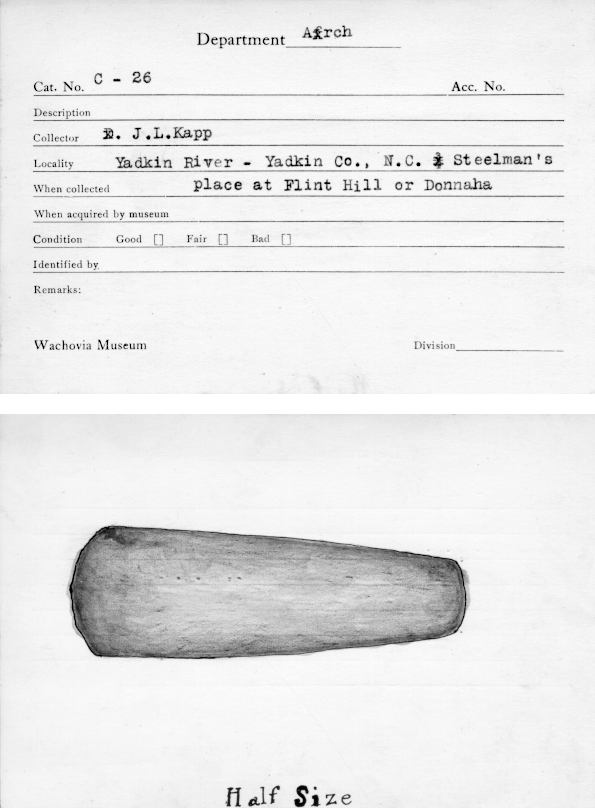 Department Arch
Cat. No. C - 26 Acc. No.
Description
Collector D. J.L.Kapp
Locality Yadkin River - Yadkin Co., N.C. Steelman's
When collected place at Flint Hill or Donnaha
When acquired by museum
Condition Good [] Fair [] Bad []
Identified by
Remarks:
Wachovia Museum Division
Half Size